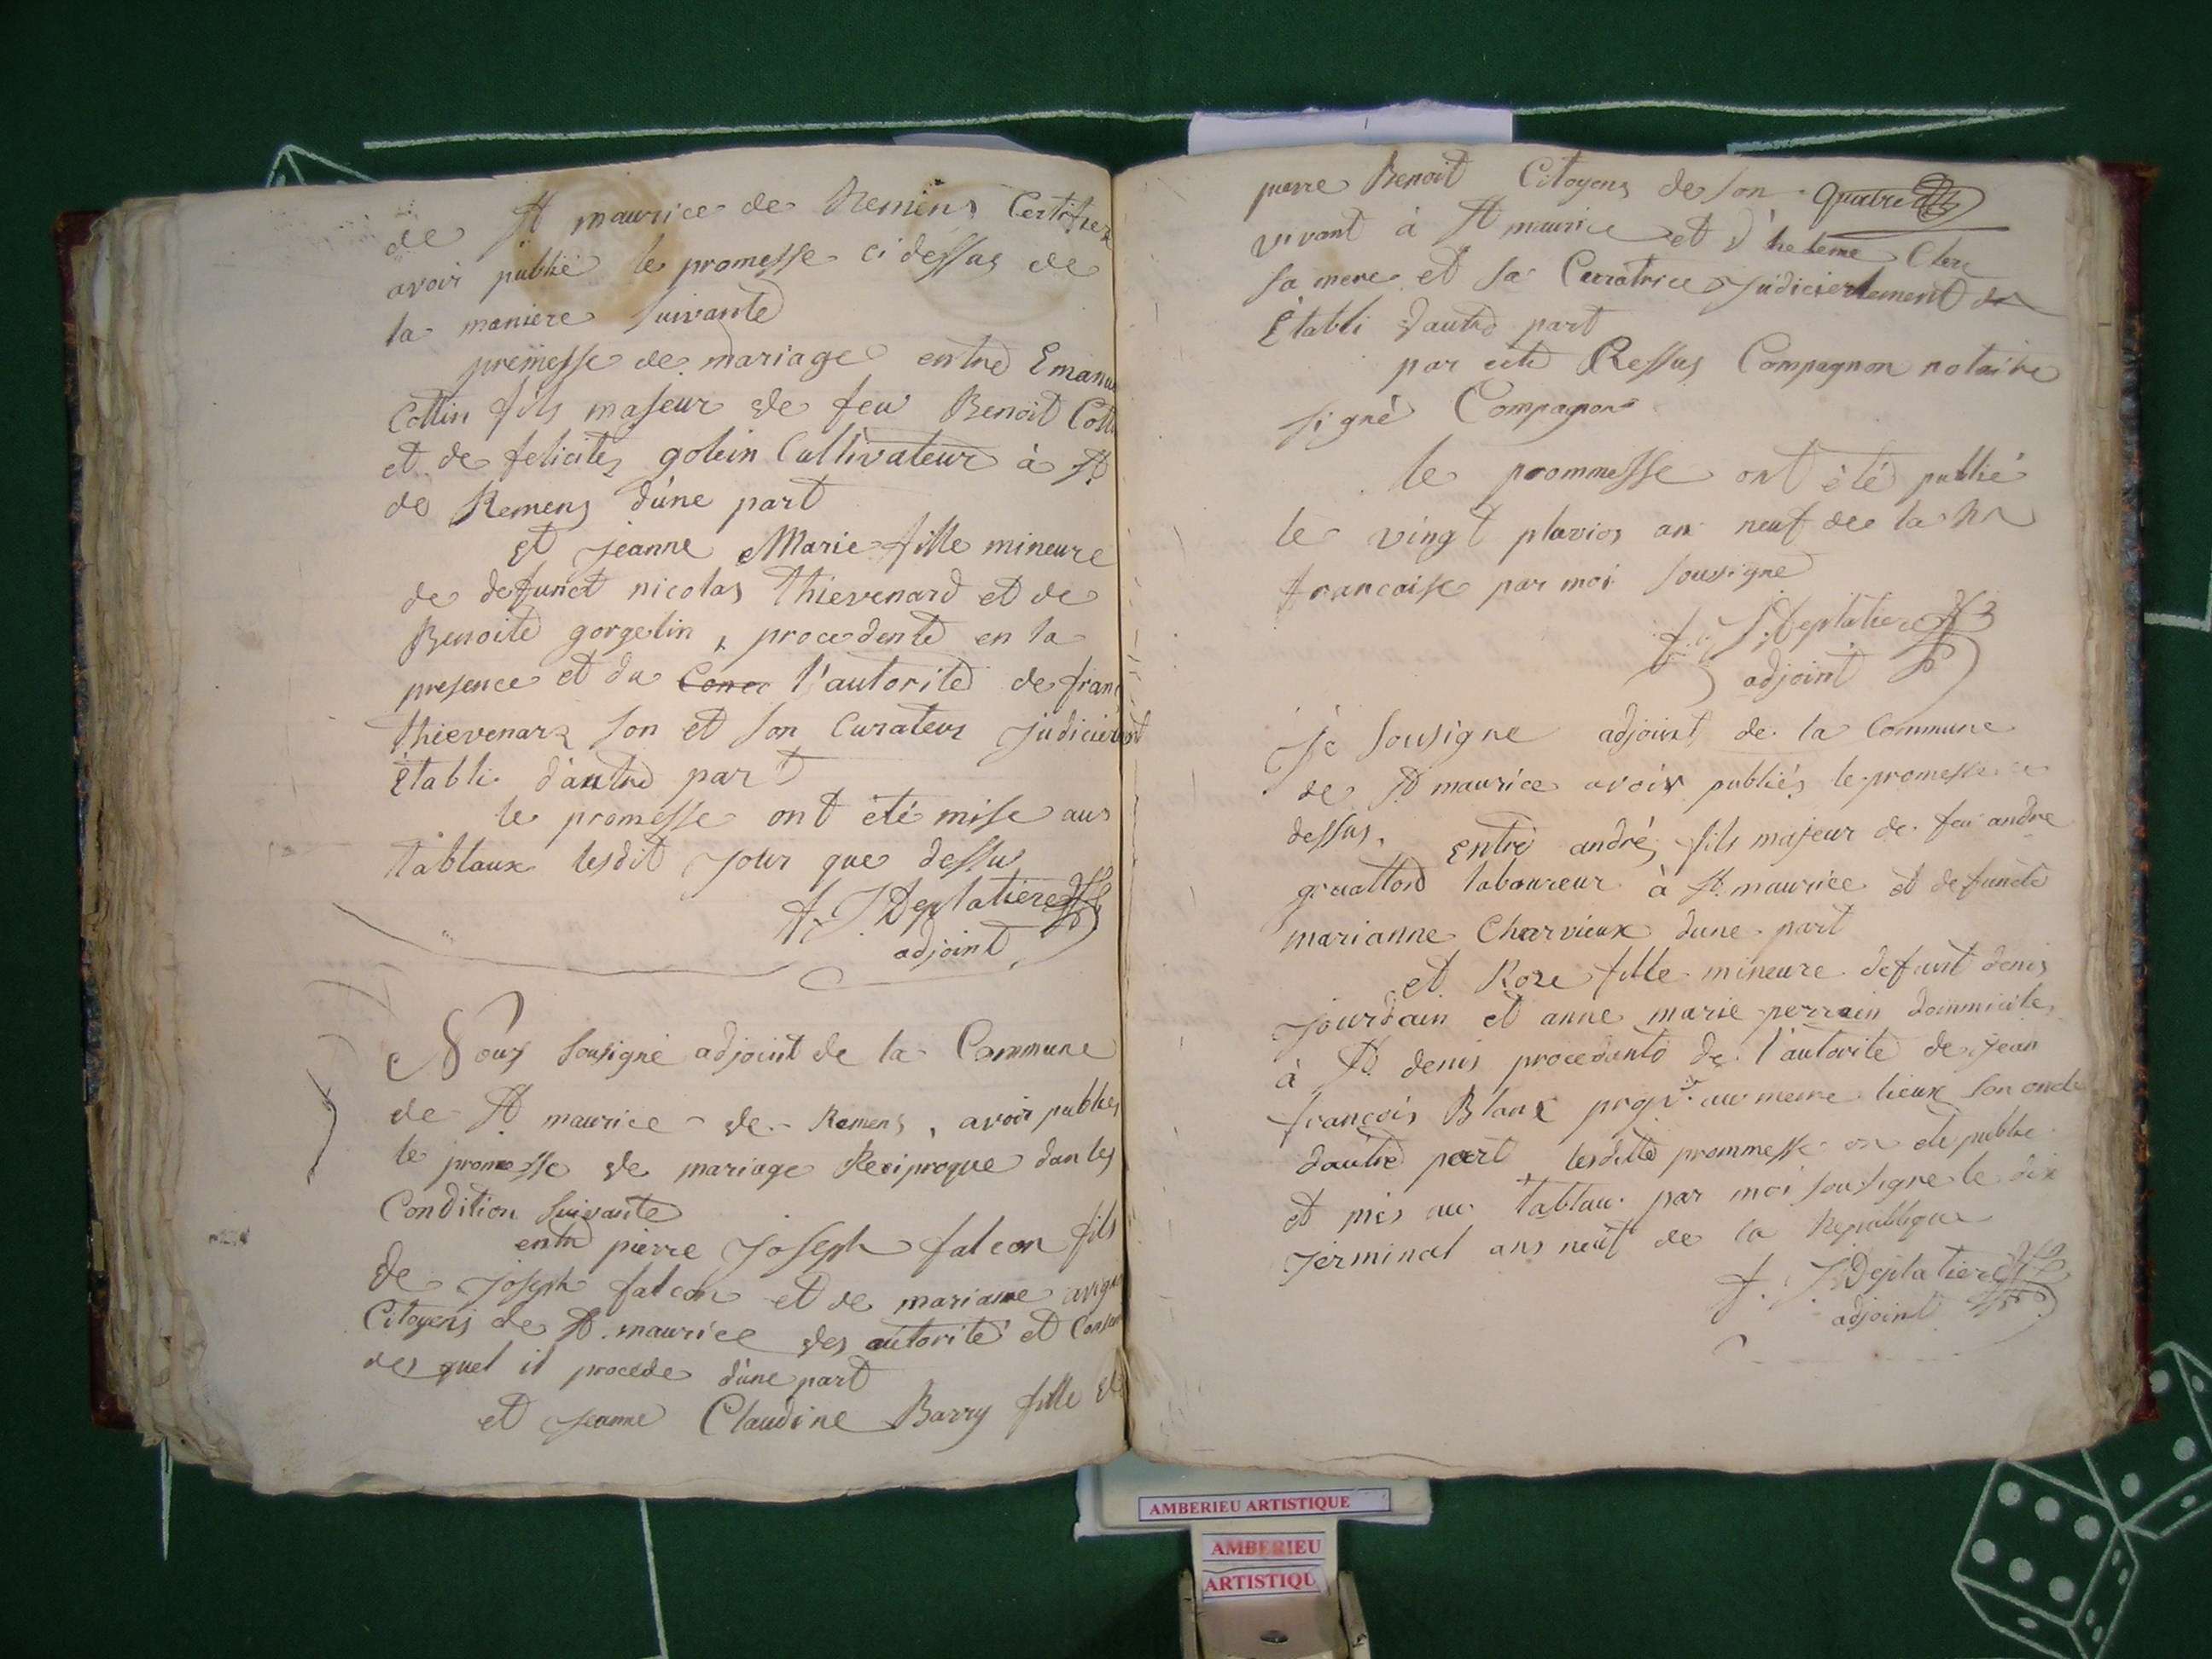 de St maurice de Remens Certifier
avoir publié le promesse ci dessus de
la maniere suivante
premesse de mariage entre Emanu
Collin fils majeur de feu Benoit Coll
et de felicitez golein Cultivateur à St
de Remens d'une part
et jeanne Marie fille mineure
de defunct nicolas Thievenard et de
Benoite gorgelin, procedente en la
presence et du l'autorite de fran
thievenar son et son Curateur judicier
Etabli d'autre part
le promesse ont été mise aux
tablaux lesdit jour que dessu
f. J. Deplatiere
adjoint
Nous sousigné adjoint de la Commune
de St maurice de Remens, avoir publies
le promesse de mariage Reciproque dan les
Condition suivante
entre pierre joseph falcon fils
de joseph falcon et de mariame
Citoyens de St. maurice des autorité et Consen
des quel il procede d'une part
et jeanne Claudine Barry fille
pierre Benoit Citoyens de son Quatre
vivant à St maurice et d' Clerc
sa mere et sa Curatrice judicierlement
Etabli d'autre part
par Ressus Compagnon notaire
signé Compagnon
le prommesse ont été publié
le vingt pluvios an neuf de la
francaise par moi sousigné
f. J. Deplatiere
adjoint
Je sousigne adjoint de la Commune
de St maurice avoir publiés le promesse ce
dessus, entre andré, fils majeur de feu andre
laboureur à St. maurice et defuncte
marianne Charvieux d'une part
et Roze fille mineure defunt denis
jourdain et anne marie perrain dommicile
à St. denis procedante de l'autorite de jean
francois Blanc au meme lieux son oncle
d'autre part, lesditte prommesse on ete publie
et mis au tablau par moi sousigne le dix
jerminal ans neuf de la Republique
f. J. Deplatiere
adjoint
AMBERIEU ARTISTIQUE
AMBERIEU
ARTISTIQU